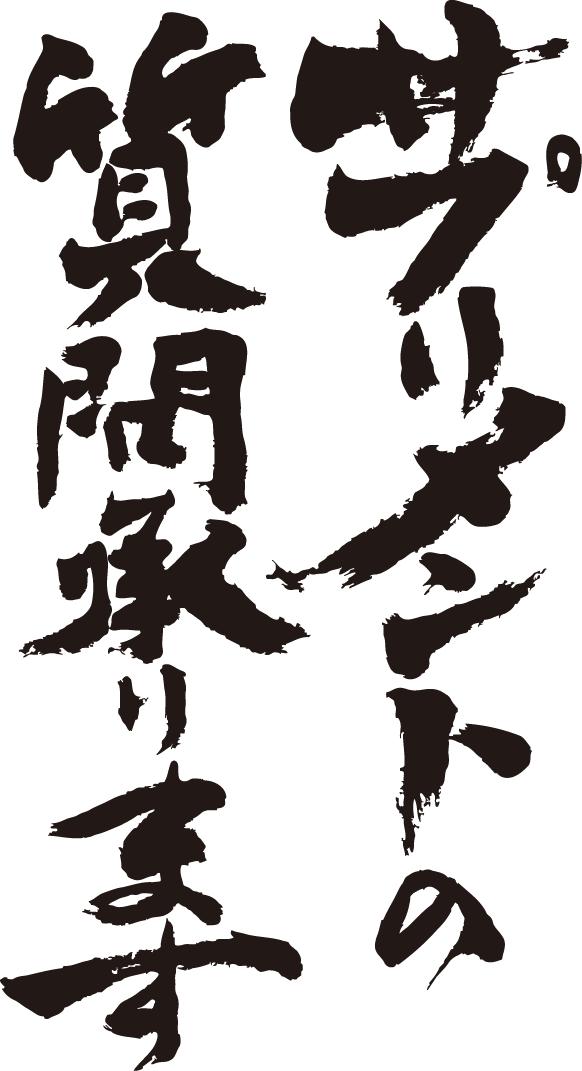 サプリメントの
質問承ります